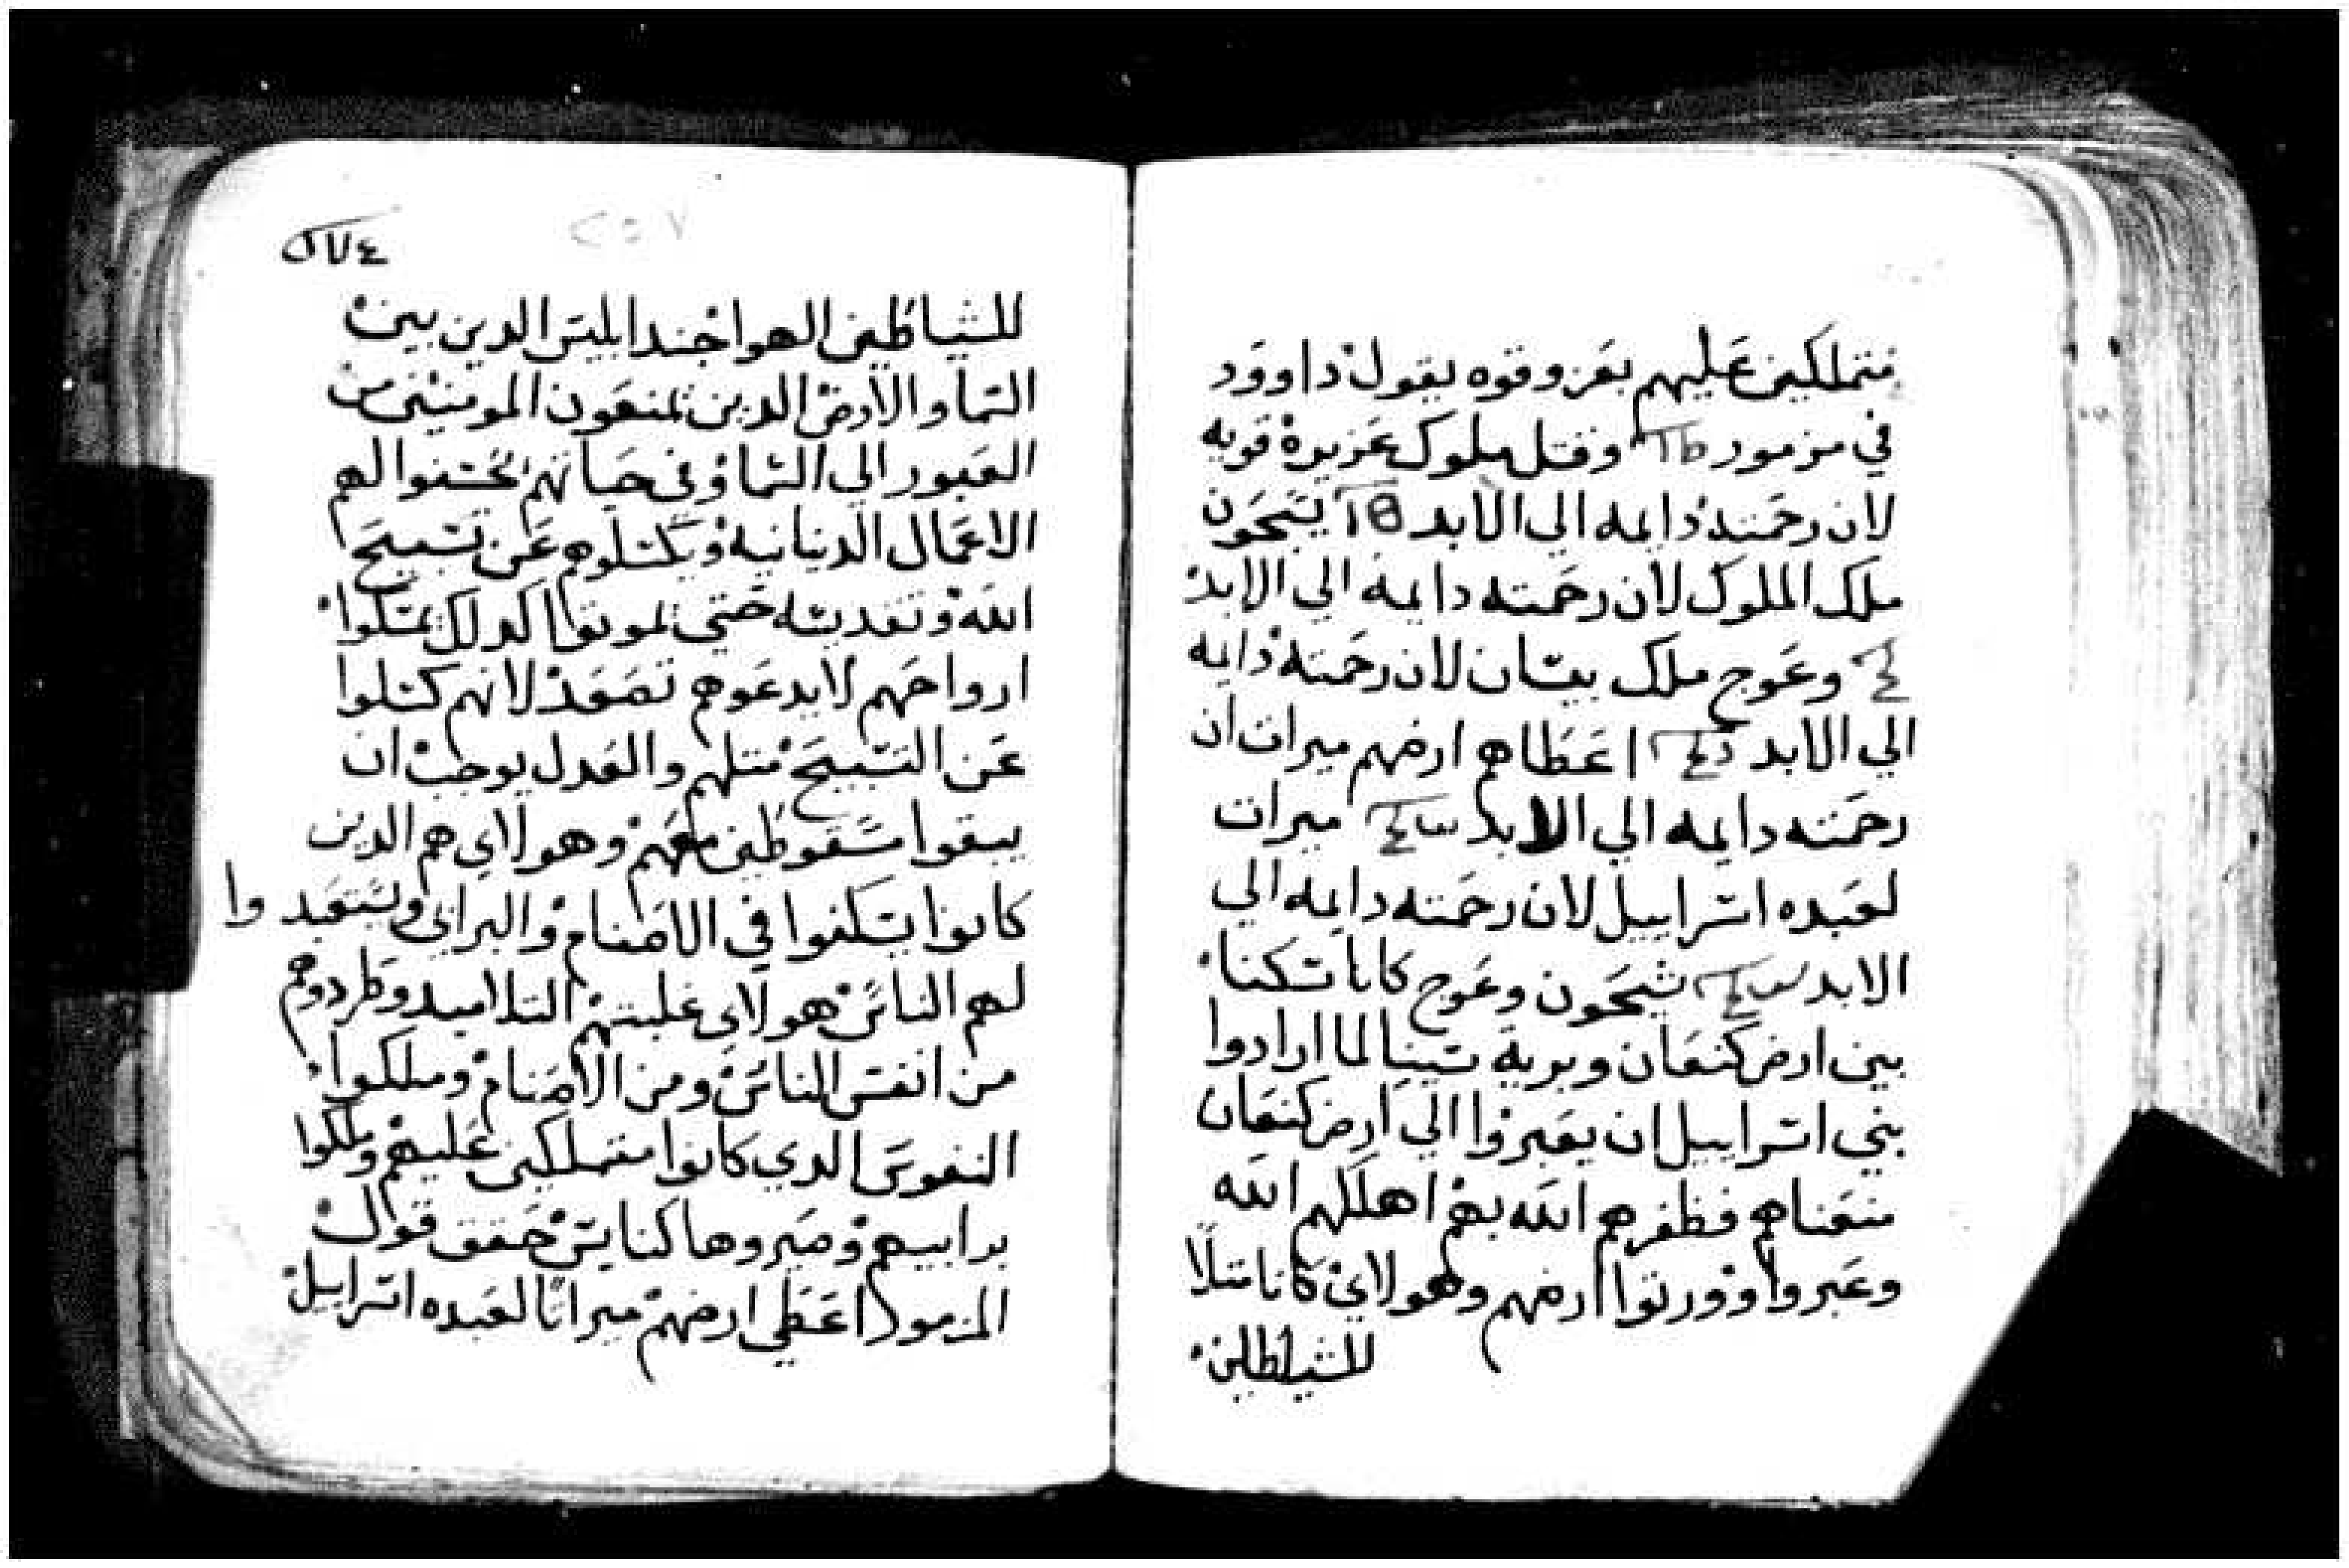 متملكين عليهم بعز وقوه يقول داوود
في مزمور وقتل ملوك عزيزة قويه
لان رحمته دايمه الي الابد سيحون
ملك الملوك لان رحمته دايمه الي الابد
وعوج ملك بيسان لان رحمته دايمه
الي الابد اعطاهم ارضهم ميرات ان
رحمته دايمه الي الابد ميرات
لعبده اسراييل لان رحمته دايمه الي
الابد شيحون وعوج كانا سكنا
بين ارض كنعان وبرية سينا لما ارادوا
بني اسراييل ان يعبروا الي ارض كنعان
منعناهم فظفرهم الله بهم اهلكهم الله
وعبروا وورتوا ارضهم وهولاي كانا متلا
للشياطين
٢٧٤
للشياطين الهوا جند ابليس الدين بين
السما والارض الدين يمنعون المومنين من
العبور الي السما وفي حياتهم يحسنوا لهم
الاعمال الدنيانيه ويكسلوهم عن تسبيح
الله وتقديسه حتى يموتوا كدلك يمسكوا
ارواحهم لا يدعوهم تصعد لانهم كسلوا
عن التسبيح متلهم والعدل يوجب ان
يبقوا سقوطين معهم وهولاي هم الدين
كانوا يسكنوا في الاصنام والبرابي ويستعبدوا
لهم الناس هولاي غلبتهم التلاميد وطردوهم
من انفس الناس ومن الاصنام وملكوا
النفوس الدي كانوا متملكين عليهم وملكوا
برابيهم وصيروها كنايس حقق قول
المزمور اعطي ارضهم ميراتا لعبده اسراييل